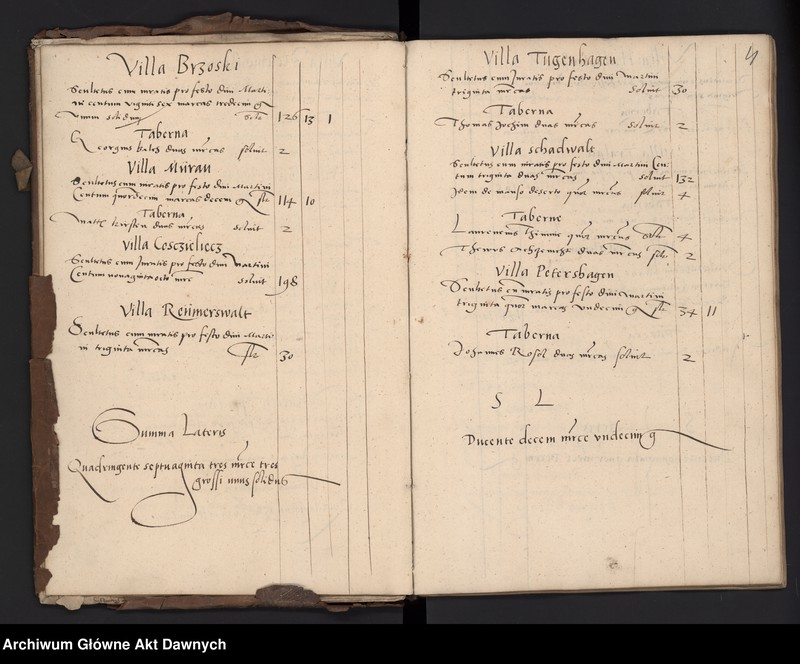 Villa Brzoski
Scultetus cum iuratis pro festo divi Marti-
ni centum viginti sex marcas tredecim g
Unum solidum solvit 126 13 1
Taberna
Georgius duas mrcas solvit 2
Villa Müran
Scultetus cum iuratis pro festo divi Martini
Centum quatuordecim marcas decem g slt 114 10
Taberna
duas mrcas solvit 2
Villa Coscielicz
Scultetus cum Juratis pro festo divi Martini
Centum nonaginta octo mrc solvit 198
Villa Reimerswalt
Scultetus cum iuratis pro festo divi Marti-
ni triginta mrcas slt 30
Summa Lateris
Quadringente septuaginta tres mrce tres
grossi unus solidus
4
Villa Tugenhagen
Scultetus cum Juratis pro festo divi Martini
triginta mrcas solvit 30
Taberna
Thomas Jochim duas mrcas solvit 2
Villa schadwalt
Scultetus cum iuratis pro festo divi Martini Cen-
tum triginta duas mrcas solvit 132
Idem de manso deserto quor mrcas solvit 4
Taberne
Laurencius Thimme quor mrcas slt 4
duas mrcas slt 2
Villa Petershagen
Scultetus cum iuratis pro festo divi Martini
triginta quor marcas undecim g slt 34 11
Taberna
Johannes Rosel duas mrcas solvit 2
S L
Ducente decem mrce undecim g
Archiwum Główne Akt Dawnych